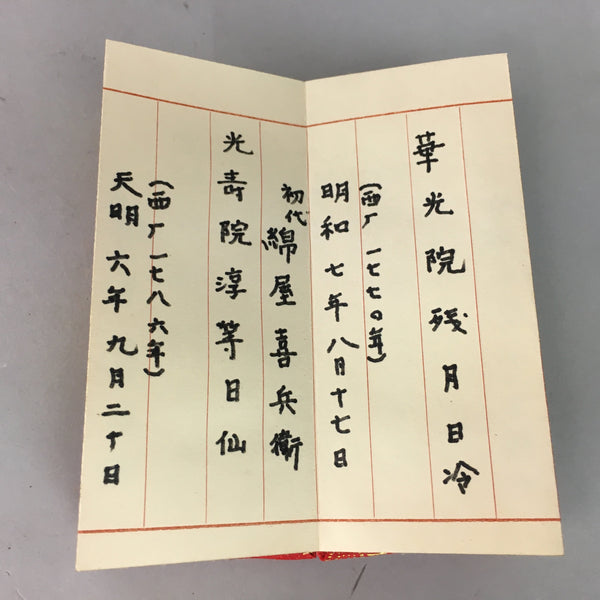 華光院残月日冷
(西厂一七七〇年)
明和七年八月十七日
初代綿屋喜兵衛
光壽院淳等日仙
(西厂一七八六年)
天明六年九月二十日